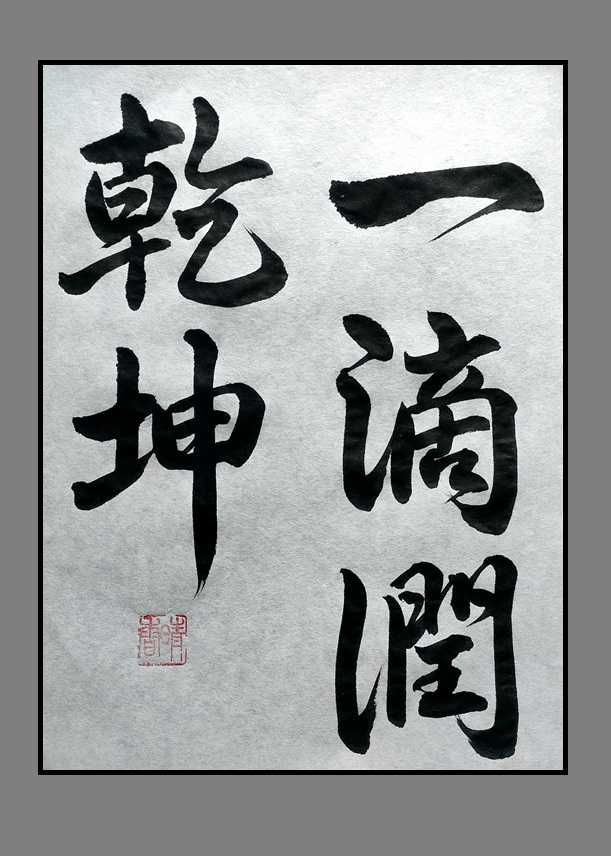 一滴潤
乾坤